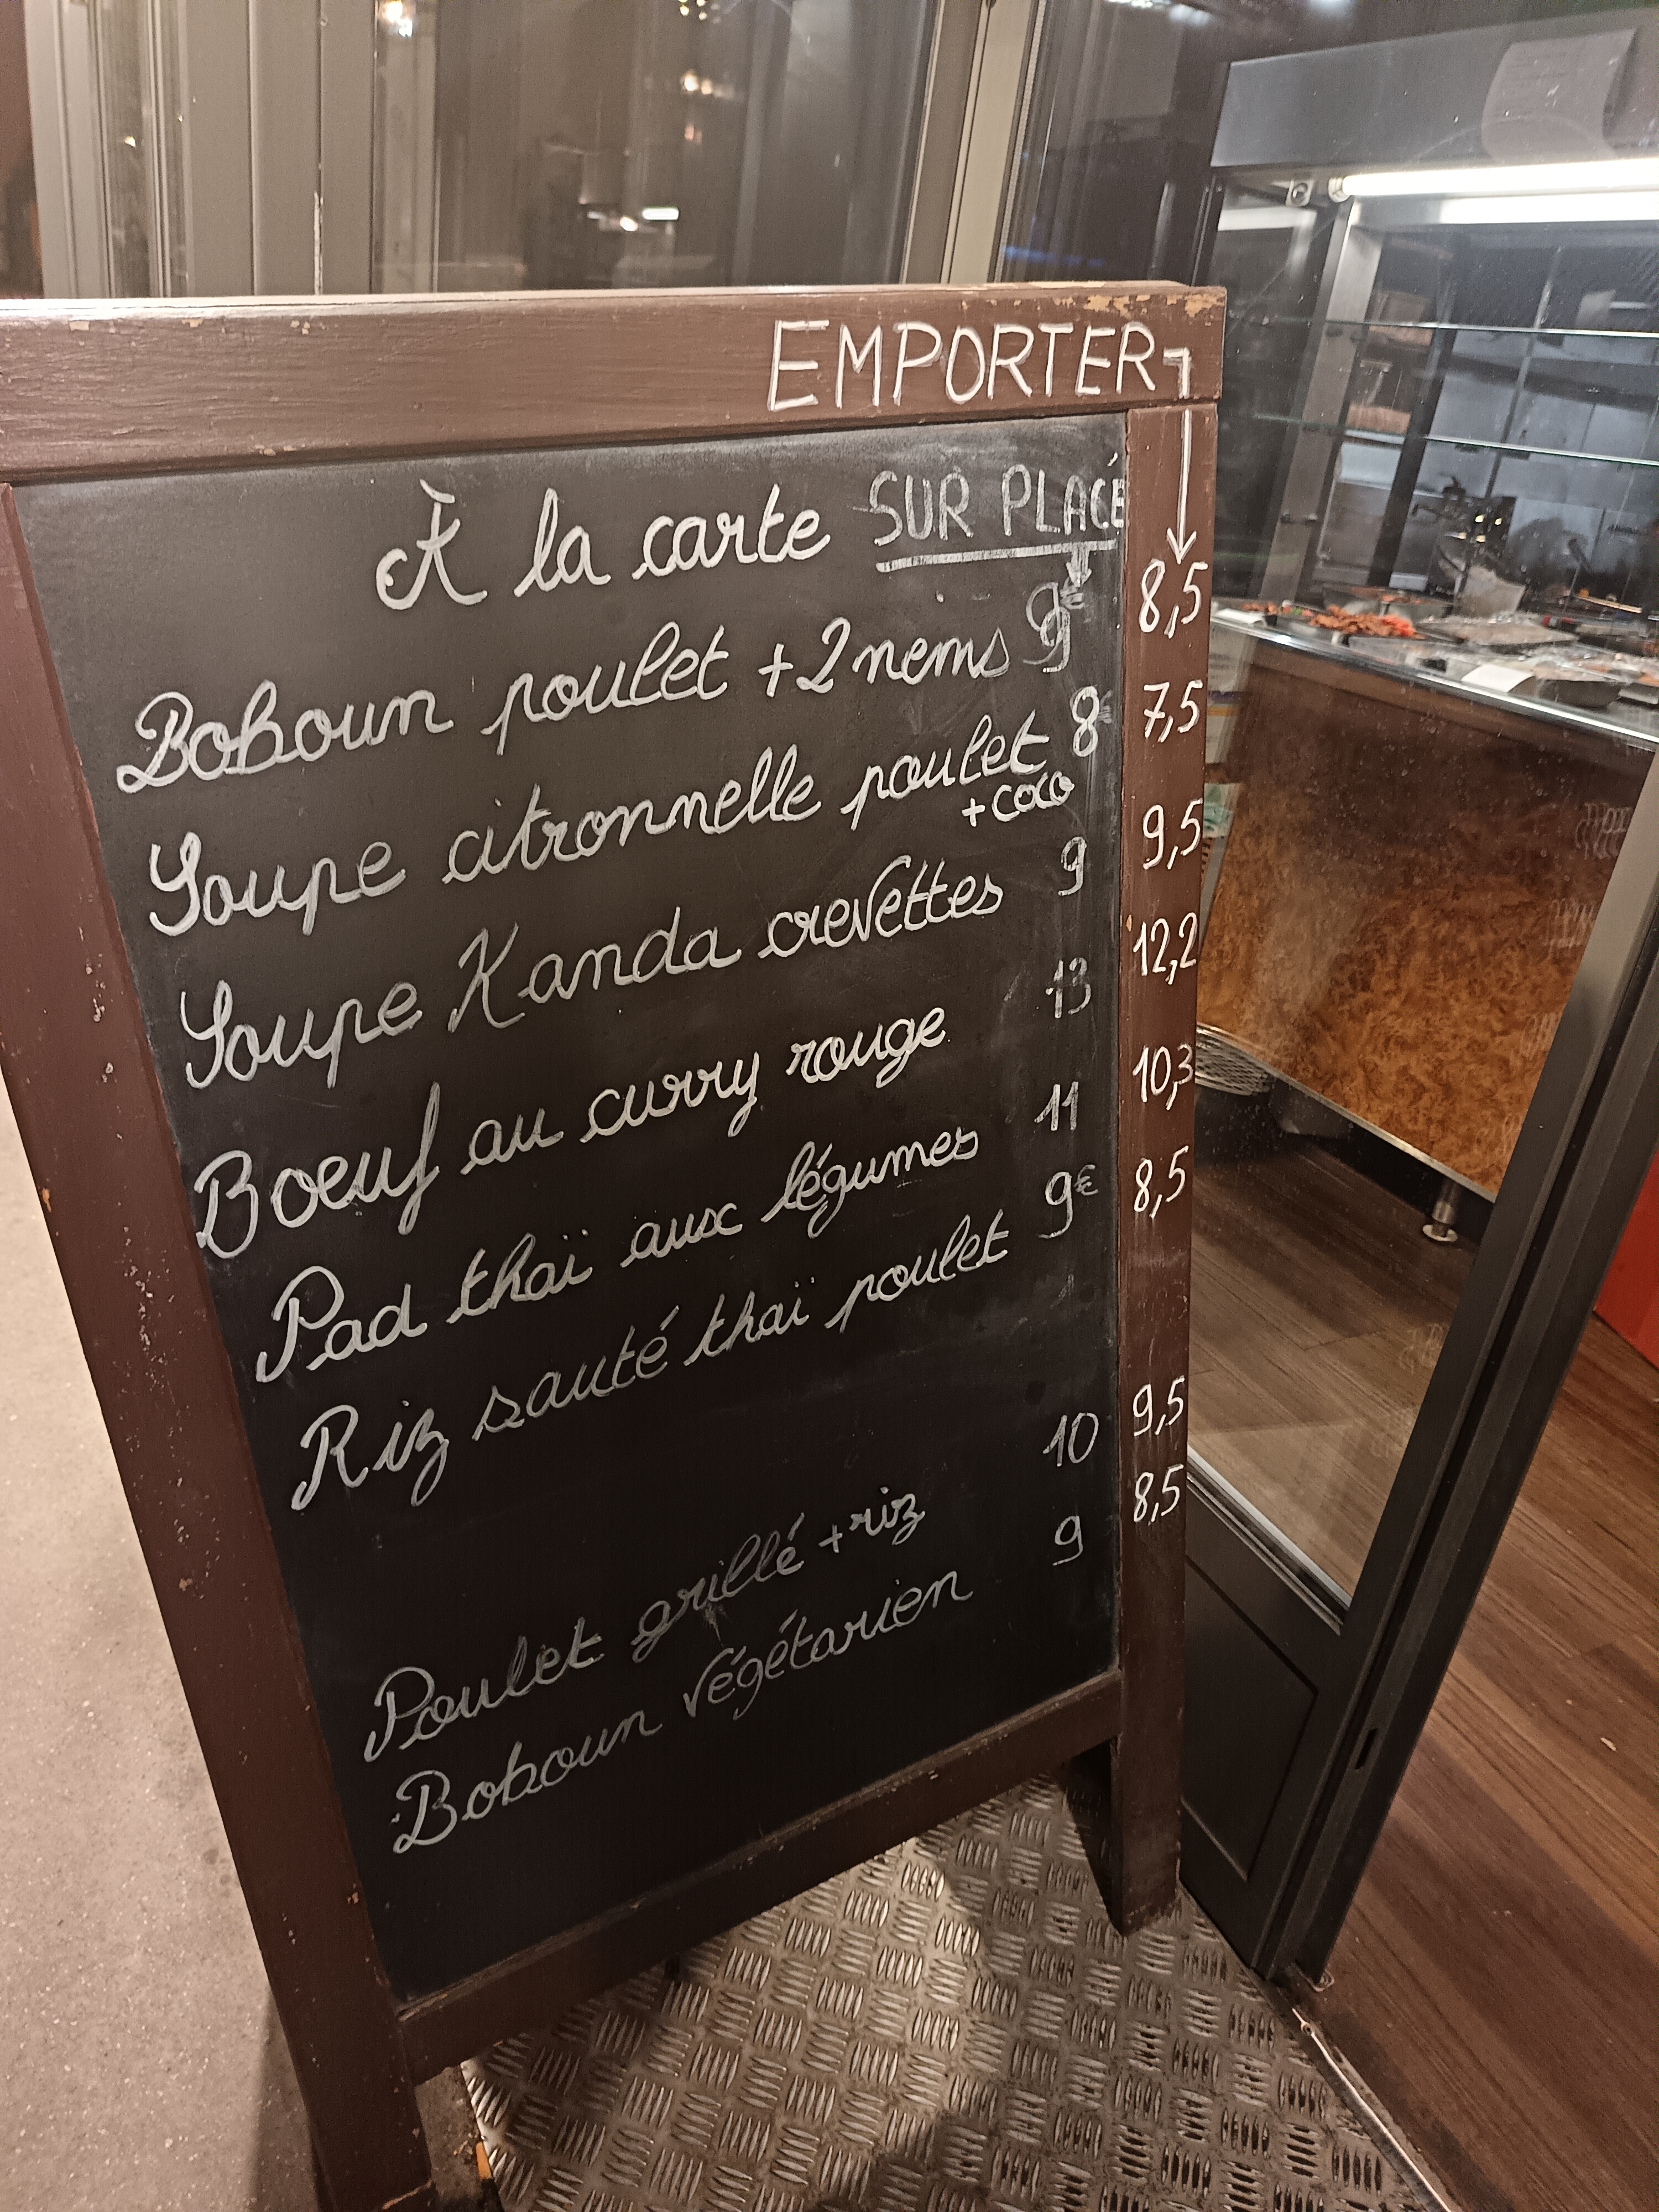 EMPORTER
À la carte SUR PLACE
Boboun poulet + 2 nems 9€ 8,5
Soupe citronnelle poulet 8€ 7,5
+ coco
Soupe Kanda crevettes 9 9,5
Boeuf au curry rouge 13 12,2
Pad thaï aux légumes 11 10,3
Riz sauté thaï poulet 9€ 8,5
Poulet grillé + riz 10 9,5
Boboun végétarien 9 8,5